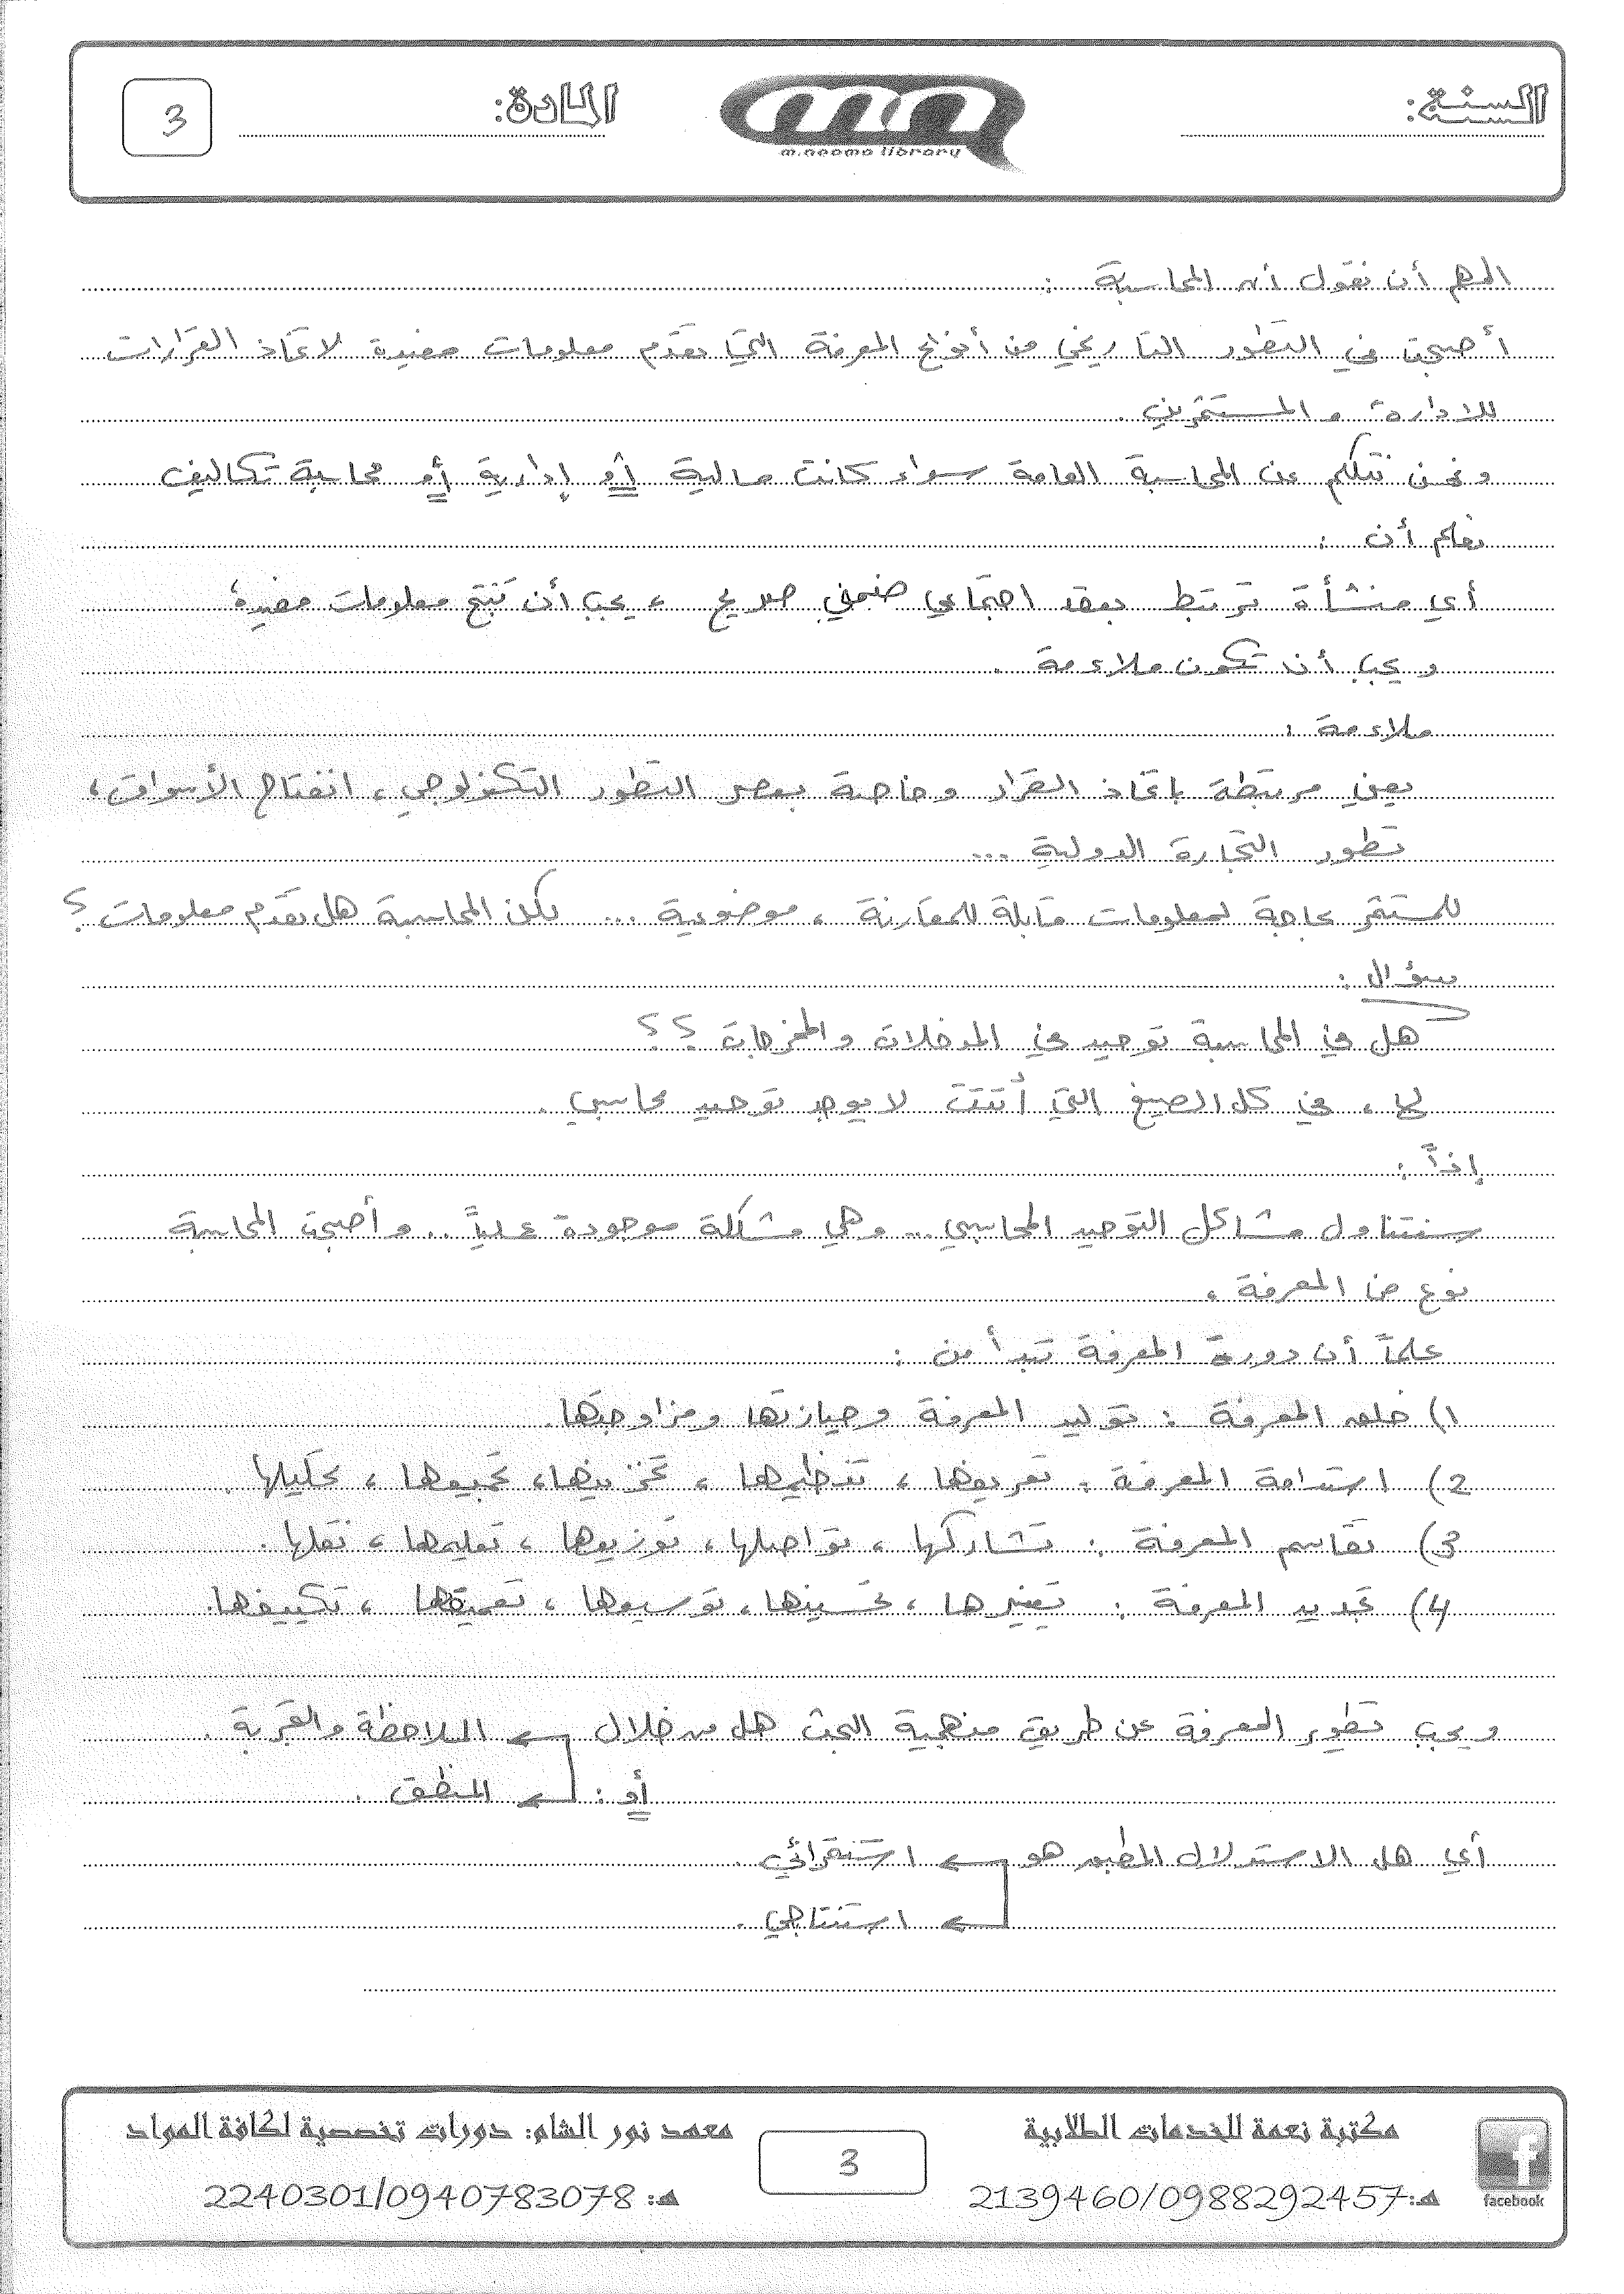 السنة:
المادة:
3
m.neoma library
المهم أن نقول أن المحاسبة :
أصبحت في التطور التاريخي من أنواع المعرفة التي تقدّم معلومات مفيدة لاتخاذ القرارات
للإدارة و المستثمرين .
و نحن نتكلم عن المحاسبة العامة سواء كانت مالية أو إدارية أو محاسبة تكاليف
نعلم أن :
أي منشأة ترتبط بعقد اجتماعي ضمني صريح ، يجب أن تنتج معلومات مفيدة ،
و يجب أن تكون ملاءمة .
ملاءمة :
يعني مرتبطة باتخاذ القرار وخاصة بعصر التطور التكنولوجي ، انفتاح الأسواق ،
تطور التجارة الدولية ...
للمستثمر بحاجة لمعلومات قابلة للمقارنة ، موضوعية ... لكن المحاسبة هل تقدّم معلومات ؟
سؤال :
هل في المحاسبة توحيد في المدخلات والمخرجات ؟؟
في كل الصيغ التي لا يوجد توحيد محاسبي .
إذاً :
سنتناول مشاكل التوحيد المحاسبي ... وهي مشكلة موجودة عملياً .. و أصبحت المحاسبة
نوع من المعرفة ،
علماً أن دورة المعرفة تبدأ من :
1) خلق المعرفة : توليد المعرفة وحيازتها ومزاوجتها.
2) استدامة المعرفة : تعريفها ، تنظيمها ، تخزينها ، تجميعها ، تحليلها .
3) تقاسم المعرفة : تشاركها ، تواصلها ، توزيعها ، تعليمها ، نقلها .
4) تجديد المعرفة : تغييرها ، تحسينها ، توسيعها ، تعميقها ، تكييفها.
و يجب تطوير المعرفة عن طريق منهجية البحث هل من خلال ← الملاحظة والتجربة .
أو : ← المنطق .
أي هل الاستدلال المطبق هو ← استقرائي .
← استنتاجي .
مكتبة نعمة للخدمات الطلابية
هـ: 2139460/0988292457
facebook
3
معهد نور الشام: دورات تخصصية لكافة المواد
هـ: 2240301/0940783078